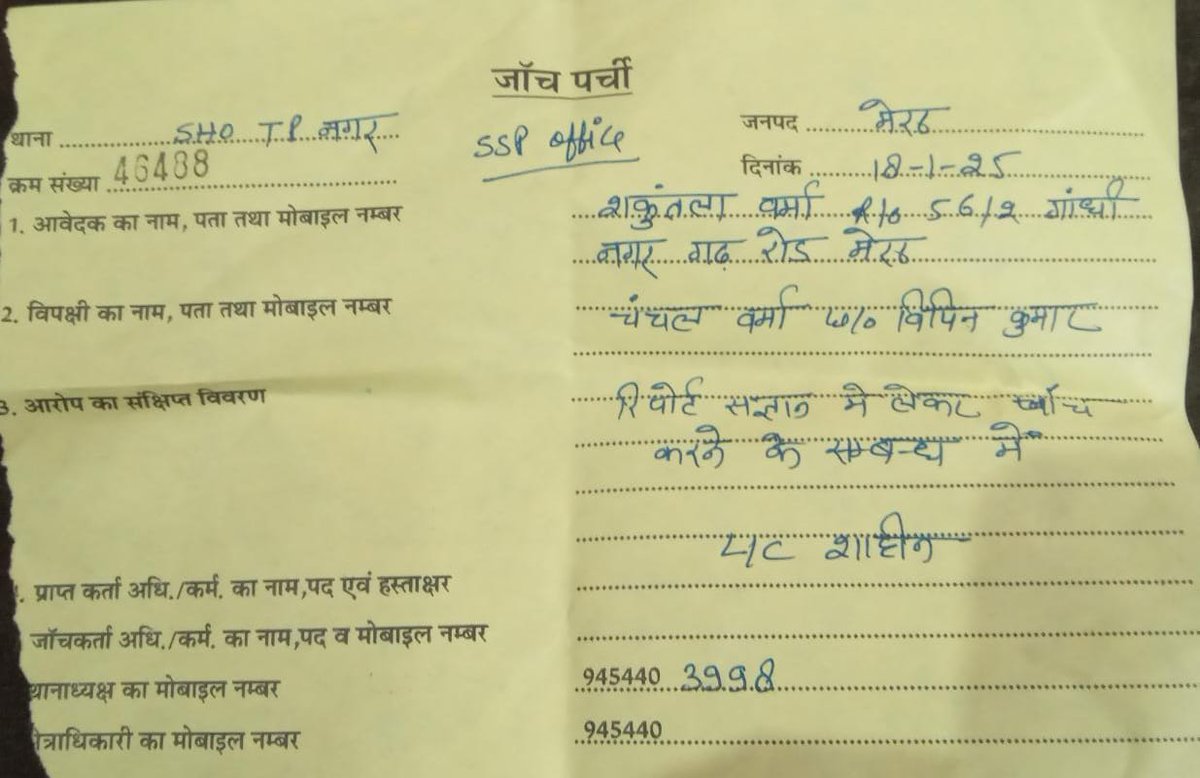 जॉच पर्ची
थाना ..... SHO T.P. नगर
SSP office
जनपद ..... मेरठ
क्रम संख्या 46488
दिनांक ..... 18-1-25
1. आवेदक का नाम, पता तथा मोबाइल नम्बर
शकुंतला वर्मा R/o 56/2 गांधी
नगर गढ़ रोड मेरठ
2. विपक्षी का नाम, पता तथा मोबाइल नम्बर
चंचल वर्मा w/o विपिन कुमार
3. आरोप का संक्षिप्त विवरण
रिपोर्ट सज्ञान मे लेकर जाँच
करने के सम्बन्ध में
शाहीन
. प्राप्त कर्ता अधि./कर्म. का नाम,पद एवं हस्ताक्षर
जॉचकर्ता अधि./कर्म. का नाम,पद व मोबाइल नम्बर
थानाध्यक्ष का मोबाइल नम्बर 945440 3998
क्षेत्राधिकारी का मोबाइल नम्बर 945440